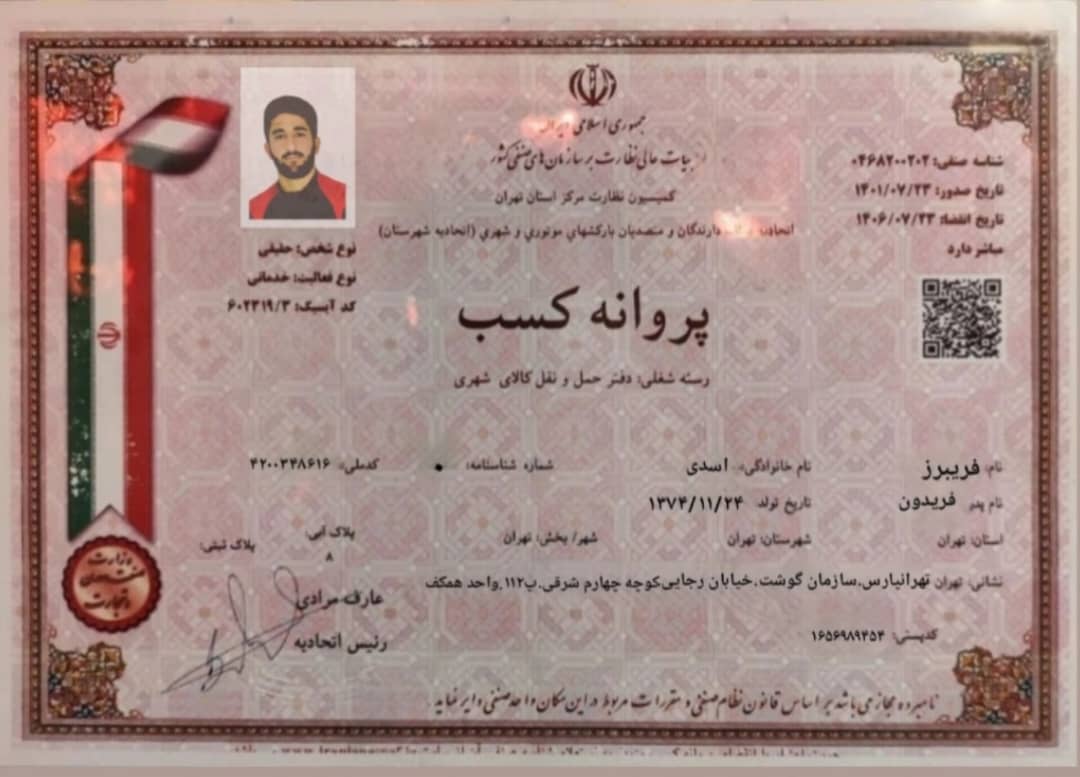 جمهوری اسلامی ایران
هیات عالی نظارت بر سازمان‌های صنفی کشور
کمیسیون نظارت مرکز استان تهران
اتحادیه دارندگان و متصدیان بارکشهای موتوری و شهری (اتحادیه شهرستان)
شناسه صنفی: ۰۴۶۸۲۰۰۲۰۲
تاریخ صدور: ۱۴۰۱/۰۷/۲۳
تاریخ انقضا: ۱۴۰۶/۰۷/۲۳
مباشر دارد
نوع شخص: حقیقی
نوع فعالیت: خدماتی
کد آیسیک: ۶۰۲۳۱۹/۳
پروانه کسب
رسته شغلی: دفتر حمل و نقل کالای شهری
نام: فریبرز نام خانوادگی: اسدی شماره شناسنامه: ۰ کدملی: ۴۲۰۰۳۴۸۶۱۶
نام پدر فریدون تاریخ تولد ۱۳۷۴/۱۱/۲۴
استان: تهران شهرستان: تهران شهر/ بخش: تهران پلاک آبی: ۸ پلاک ثبتی:
نشانی: تهران تهرانپارس.سازمان گوشت.خیابان رجایی کوچه چهارم شرقی.پ۱۱۲.واحد همکف
کدپستی: ۱۶۵۶۹۸۹۴۵۴
عارف مرادی
رئیس اتحادیه
وزارت صنعت معدن و تجارت
نامبرده مجاز می باشد بر اساس قانون نظام صنفی و مقررات مربوط در این مکان واحد صنفی دایر نماید.